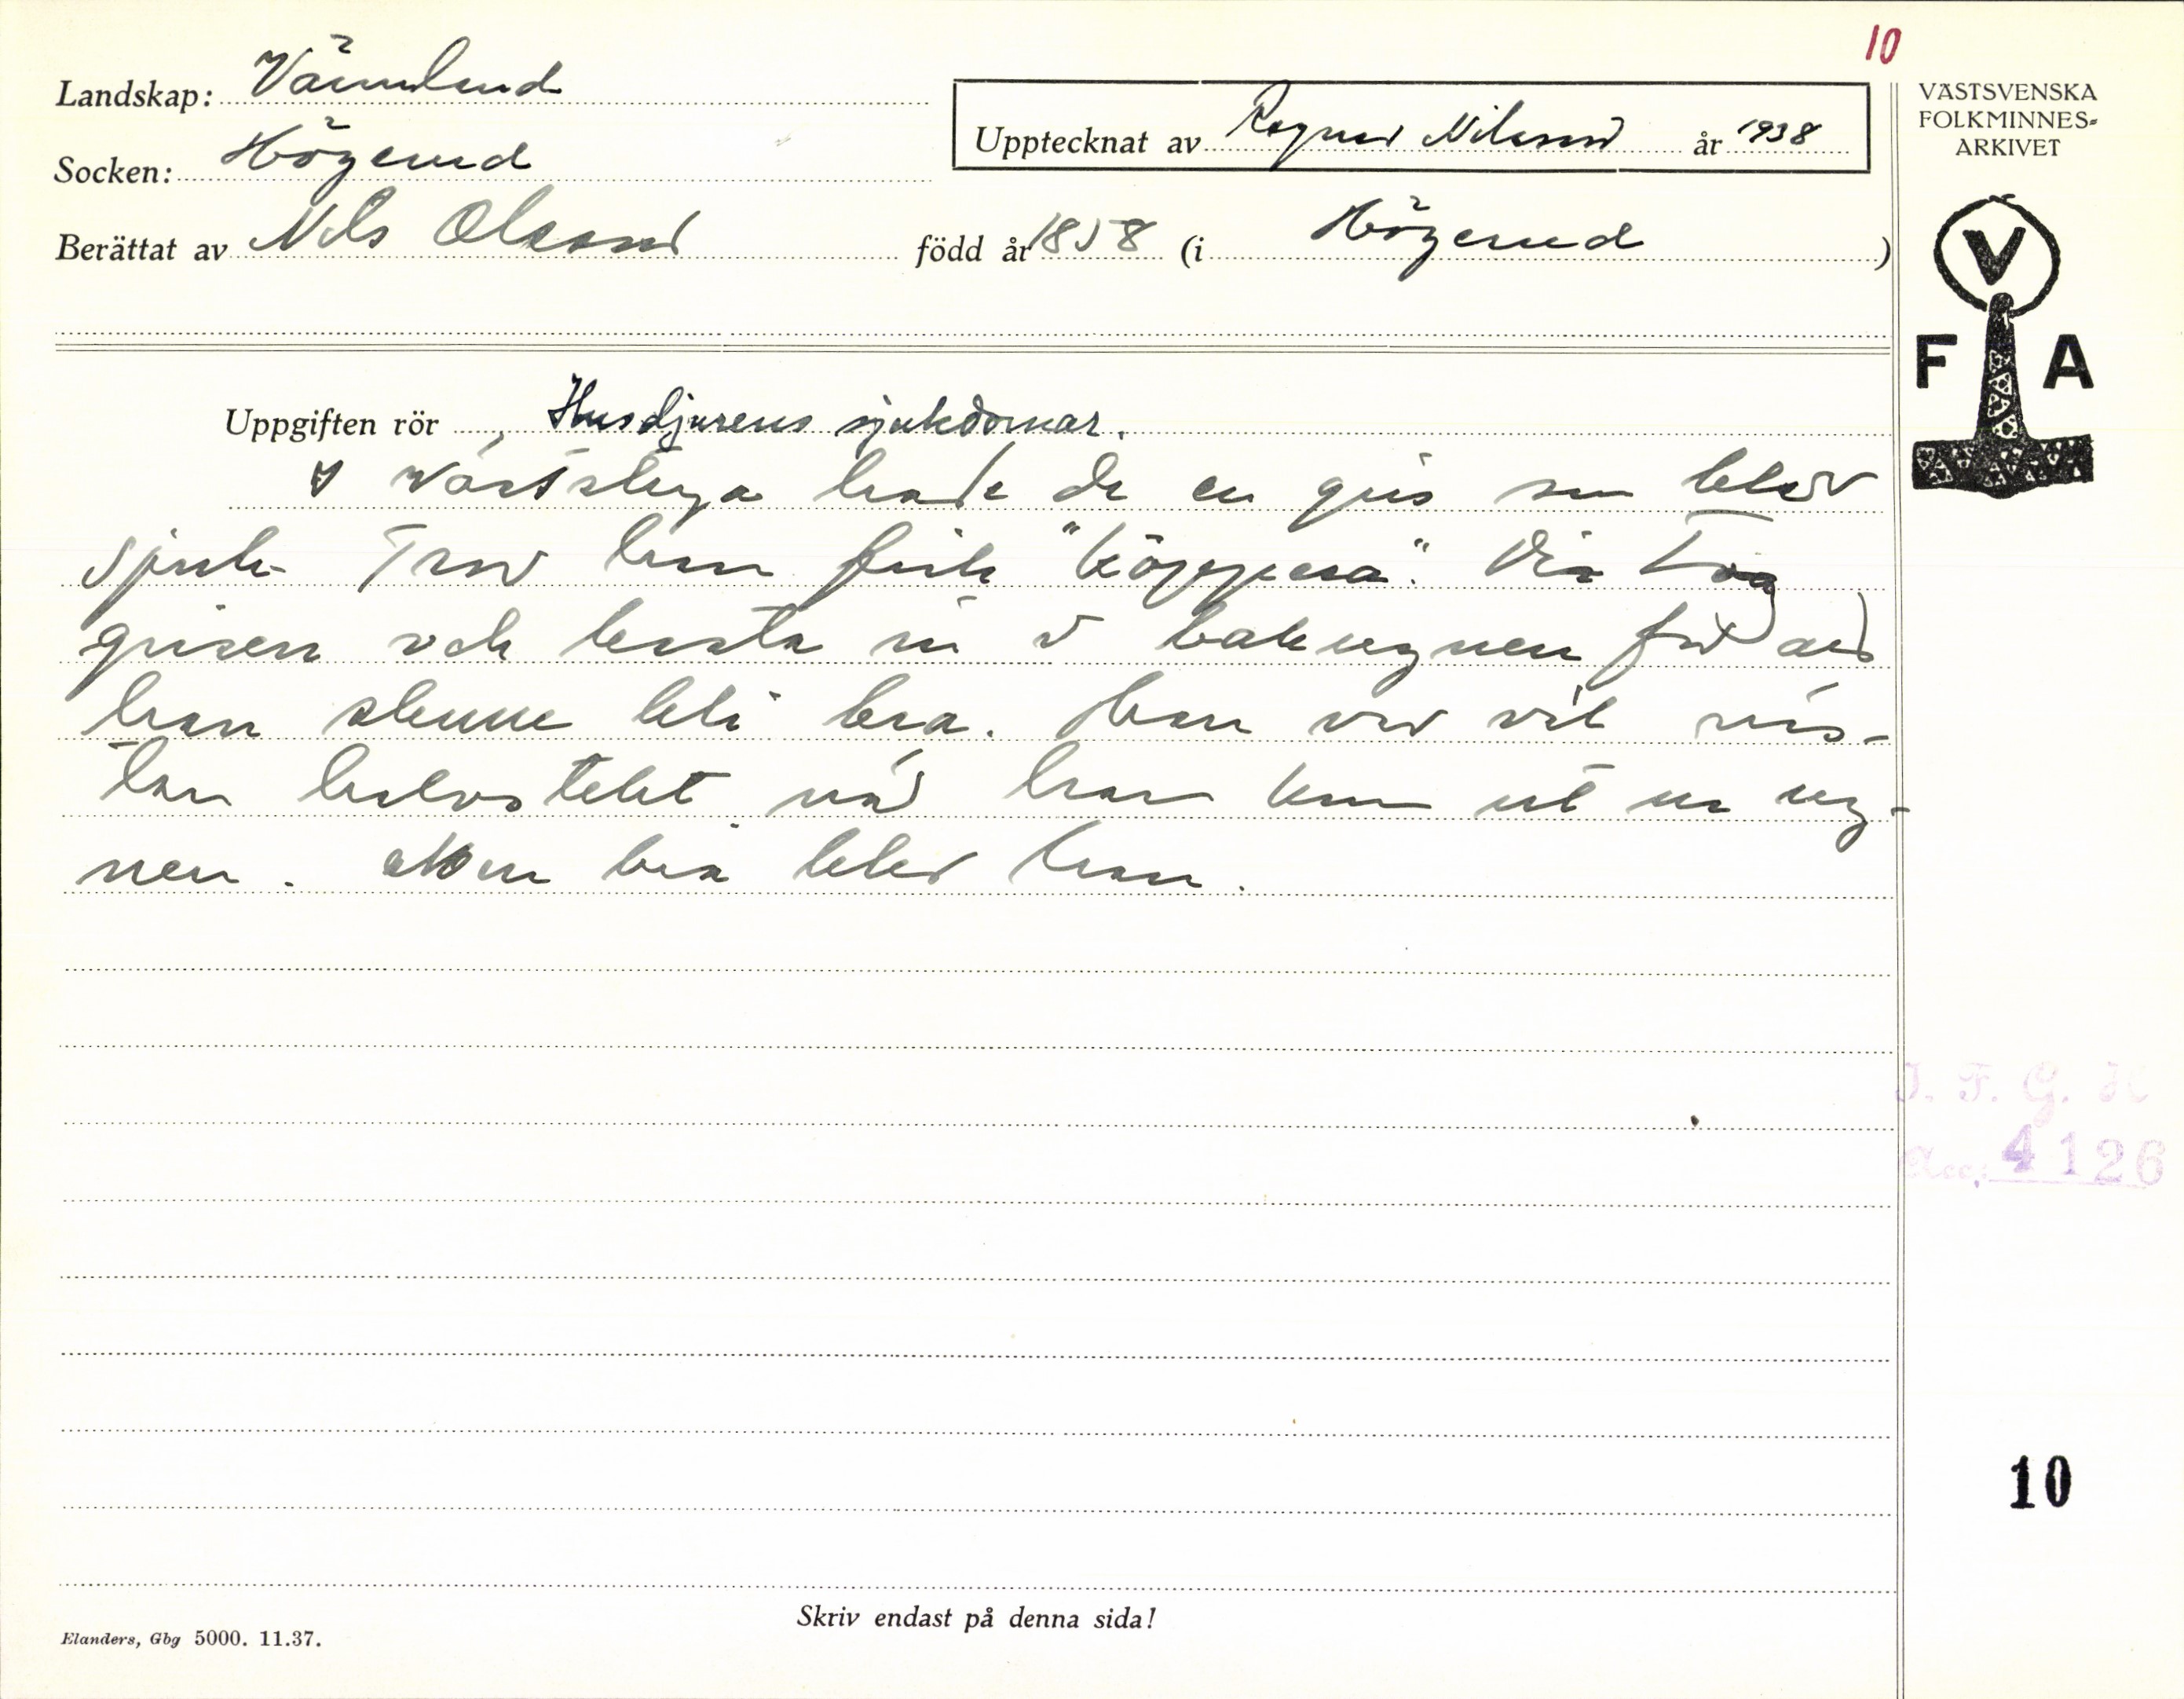 10
Landskap: Värmland
Socken: Högerud
Upptecknat av Ragnar Nilsson år 1938
Berättat av Nils Olsson född år 1858 (i Högerud)
VÄSTSVENSKA
FOLKMINNES-
ARKIVET
V
F A
Uppgiften rör Husdjurens sjukdomar.
I hade de en gris som blev
sjuk. Tror han fick "köppera". Di tog
grisen och kasta in i bakugnen för att
han skulle bli bra. Han var väl näs-
tan halvstekt när han kom ut ur ug-
nen. Men bra blev han.
I. F. G. H
Acc. 4126
10
Skriv endast på denna sida!
Elanders, Gbg 5000. 11.37.